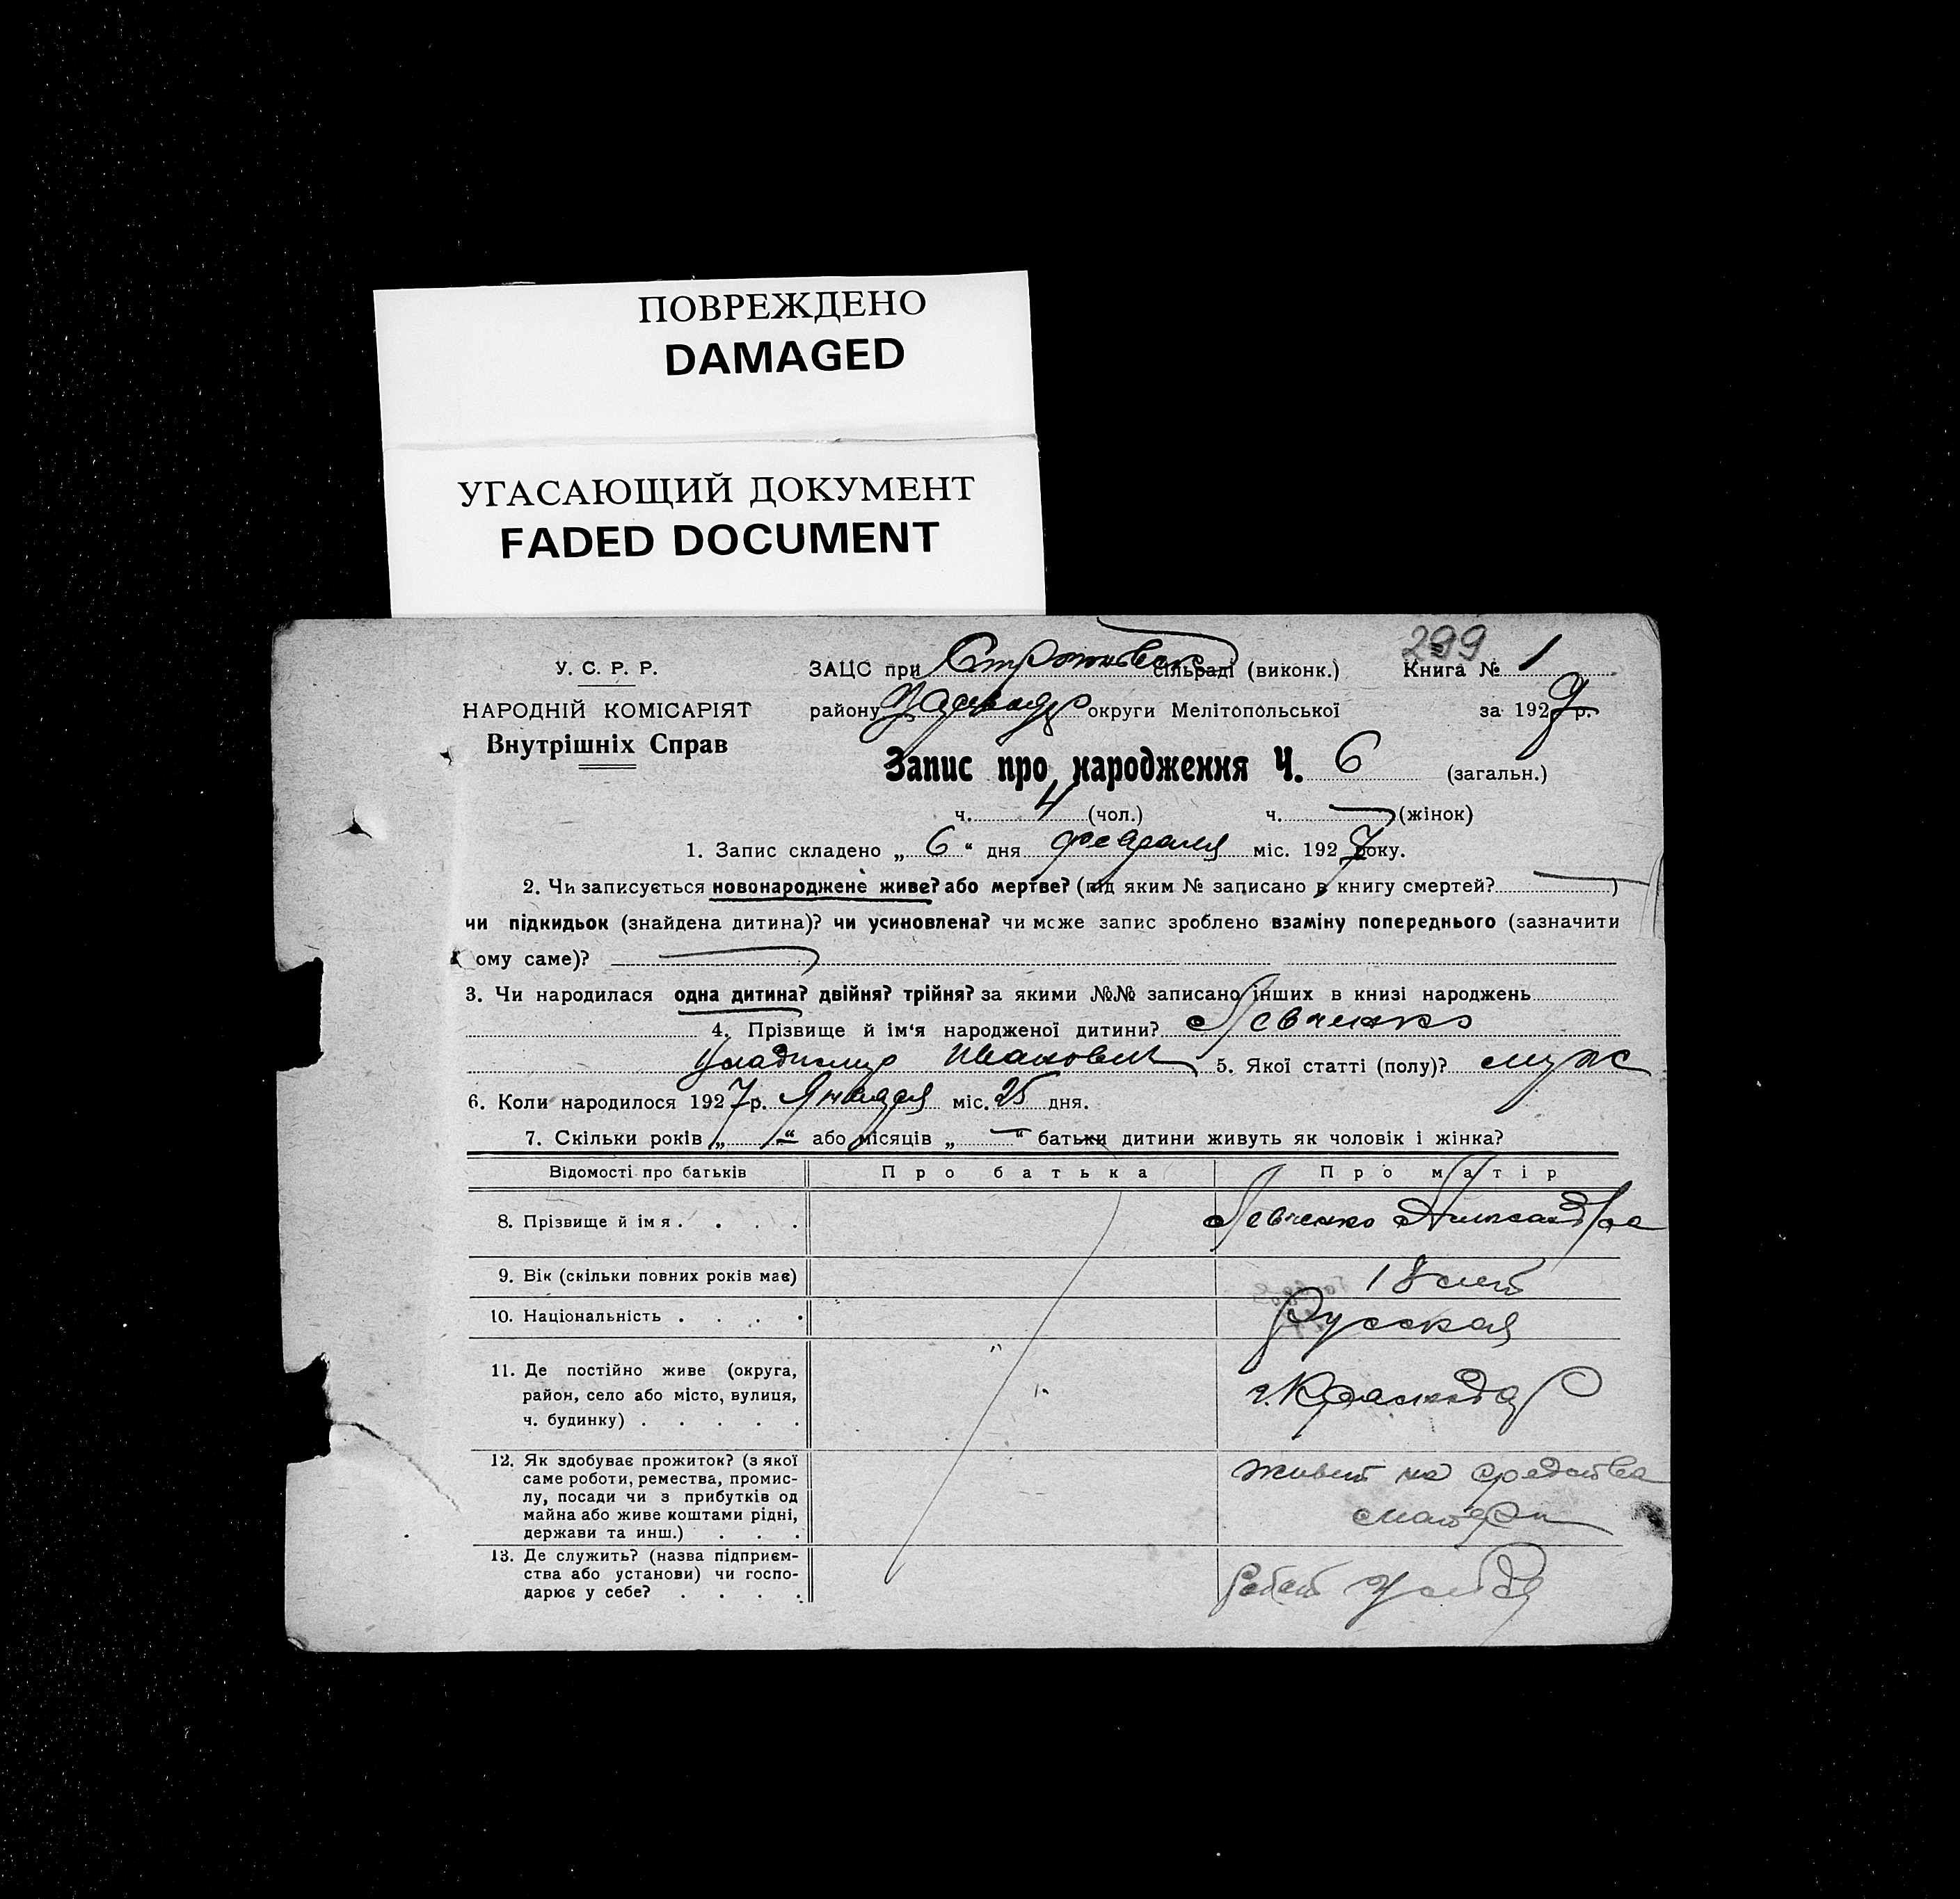 ПОВРЕЖДЕНО
DAMAGED
УГАСАЮЩИЙ ДОКУМЕНТ
FADED DOCUMENT
299
У. С. Р. Р.
НАРОДНІЙ КОМІСАРІЯТ
Внутрішніх Справ
ЗАЦС при сільраді (виконк.) Книга № 1
району округи Мелітопольської за 1927 р.
Запис про народження Ч. 6 (загальн.)
ч. 4 (чол.) ч. — (жінок)
1. Запис складено „ 6 “ дня февраля міс. 1927 року.
2. Чи записується новонароджене живе? або мертве? (під яким № записано в книгу смертей? — )
чи підкидьок (знайдена дитина)? чи усиновлена? чи може запис зроблено взаміну попереднього (зазначити
ому саме)? —
3. Чи народилася одна дитина? двійня? трійня? за якими №№ записано інших в книзі народжень
4. Прізвище й ім‘я народженої дитини? Левченко
Владимир Иванович 5. Якої статті (полу)? муж
6. Коли народилося 1927 р. Января міс. 25 дня.
7. Скільки років „ — “ або місяців „ — “ батьки дитини живуть як чоловік і жінка?
Відомості про батьків Про батька Про матір
8. Прізвище й імя . . . . Левченко Александра
9. Вік (скільки повних років має) 18 лет
10. Національність . . . . Русская
11. Де постійно живе (округа,
район, село або місто, вулиця, г. Краснодар
ч. будинку) . . . . .
12. Як здобуває прожиток? (з якої
саме роботи, ремества, промис- живет на средства
лу, посади чи з прибутків од
майна або живе коштами рідні, матери
держави та инш.) . . .
13. Де служить? (назва підприєм-
ства або установи) чи госпо-
дарює у себе? . . . .